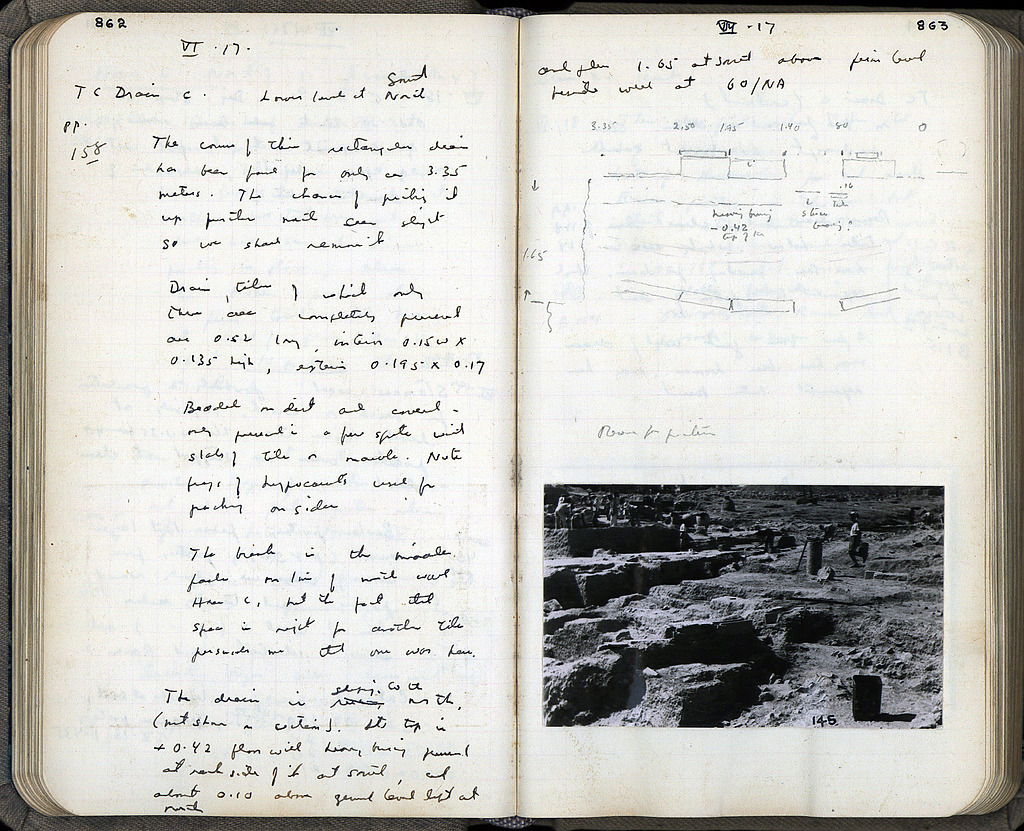 862
VI · 17 ·
TC Drain C. Lower level at South North
pp.
158
The course of this rectangular drain
has been found for only ca 3.35
meters. The chance of picking it
up further north seem slight
so we shall remove it.
Drain, tiles of which only
three are completely preserved
are 0.52 long, interior 0.15 w x
0.135 high, exterior 0.195 x 0.17
Bedded on dirt and covered -
only preserved in a few spots with
slabs of tile or marble. Note
frags of hypocausts used for
packing on sides
The break in the middle
falls on line of north wall
House C, but the fact that
space is right for another tile
persuades me that one was here.
The drain is sloping to the north,
(not shown in section). Its top is
+ 0.42 floor with heavy burning preserved
at each side of it at south, and
about 0.10 above ground level left at
north
863
VI · 17
and floor 1.65 at south above
level
west at 60/NA
3.35 2.50 1.95 1.40 .80 0
1.65
heavy burning
- 0.42
top of
.16
tile
Room for
145